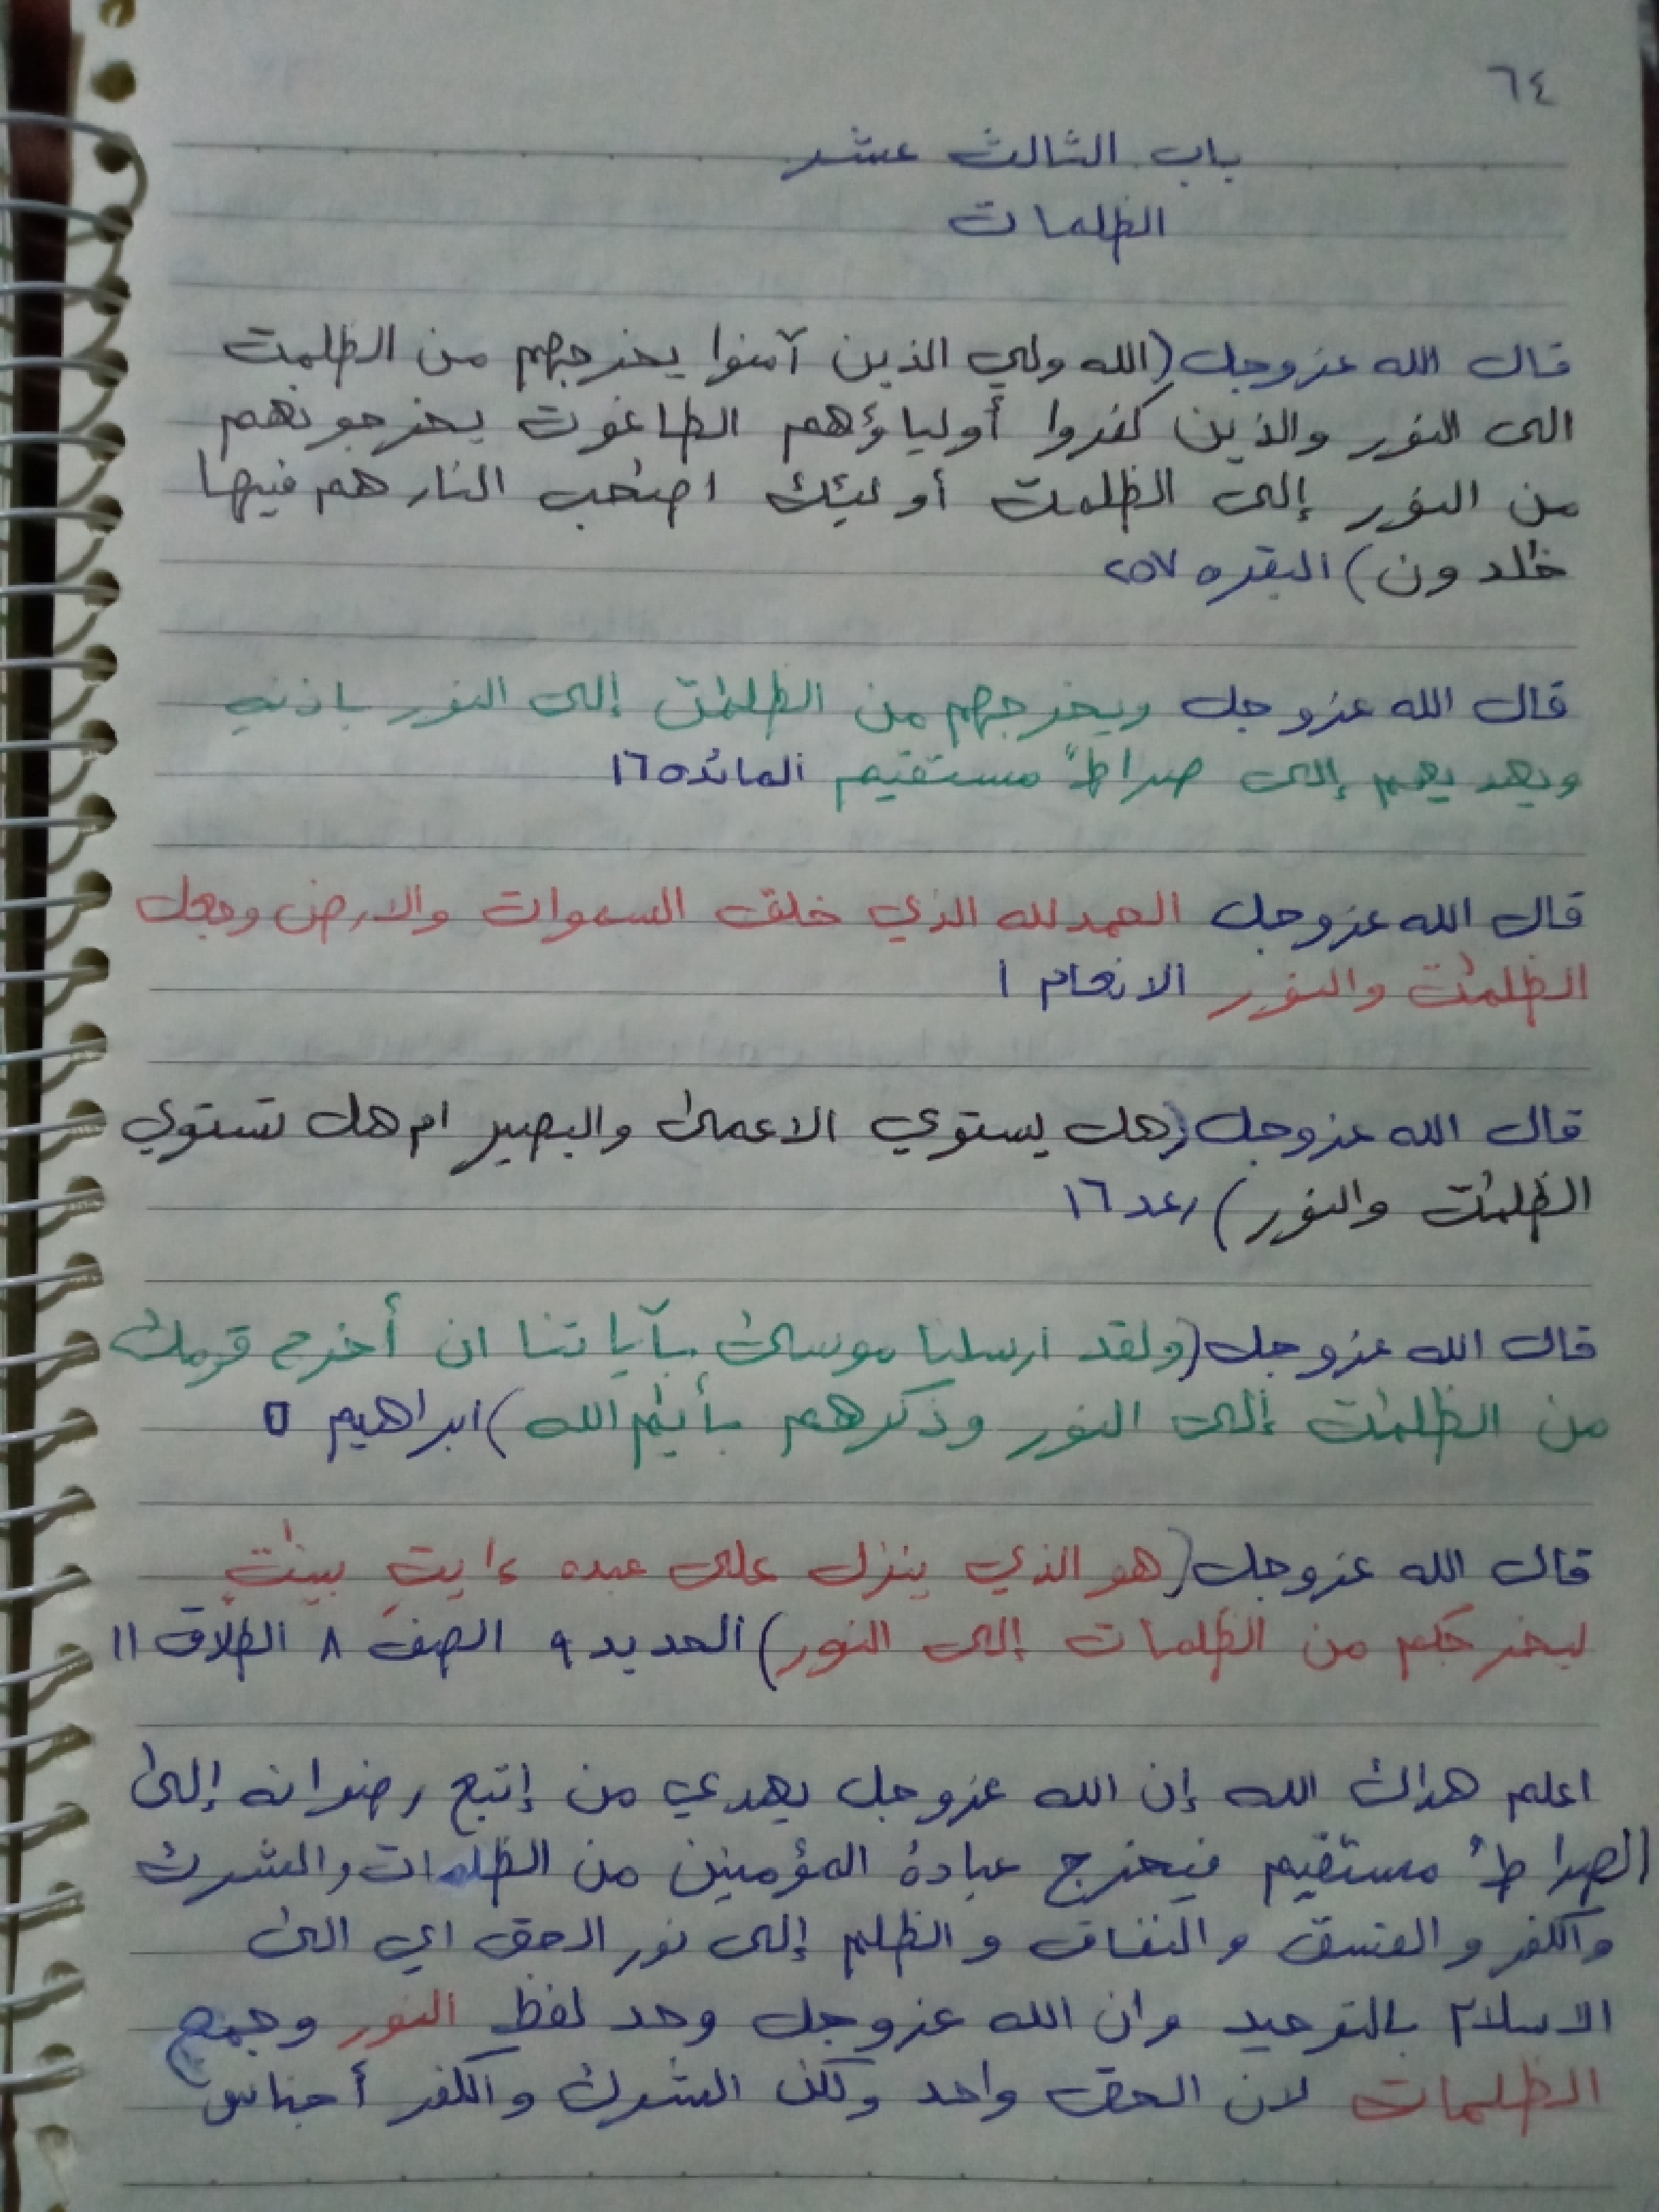 ٦٤
باب الثالث عشر
الظلمات
قال الله عزوجل (الله ولي الذين آمنوا يخرجهم من الظلمت
الى النور والذين كفروا أولياؤهم الطاغوت يخرجونهم
من النور إلى الظلمت أولئك اصٰحب النار هم فيها
خٰلدون) البقره ٢٥٧
قال الله عزوجل ويخرجهم من الظلمٰت إلى النور باذنه
ويهديهم إلى صراطٍ مستقيم المائده ١٦
قال الله عزوجل الحمد لله الذي خلق السموات والارض وجعل
الظلمٰت والنور الانعام ١
قال الله عزوجل (هل يستوي الاعمىٰ والبصير ام هل تستوي
الظلمٰت والنور) رعد ١٦
قال الله عزوجل (ولقد ارسلنا موسىٰ بآياتنا ان أخرج قومك
من الظلمٰت إلى النور وذكرهم بأييٰم الله) ابراهيم ٥
قال الله عزوجل (هو الذي ينزل على عبده ءايتٍ بينٰتٍ
ليخرجكم من الظلمات إلى النور) الحديد ٩ الصف ٨ الطلاق ١١
اعلم هداك الله إن الله عزوجل يهدي من إتبع رضوانه إلىٰ
الصراطُ مستقيم فيخرج عبادهُ المؤمنين من الظلمات والشرك
والكفر والفسق والنفاق والظلم إلى نور الحق اي الىٰ
الاسلام بالتوحيد وان الله عزوجل وحد لفظ النور وجمع
الظلمات لان الحق واحد ولكن الشرك والكفر أجناس